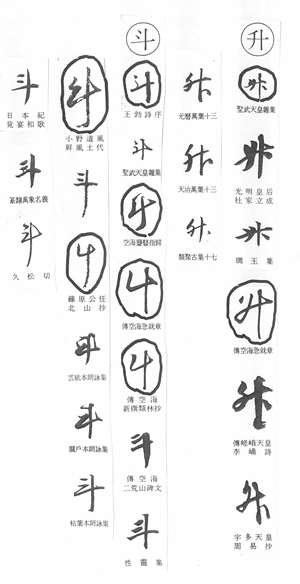 升
升
聖武天皇雜集
升
光明皇后
杜家立成
升
琱玉集
升
傳空海急就章
升
傳嵯峨天皇
李嶠詩
升
宇多天皇
周易抄
升
元暦萬葉十三
升
天治萬葉十三
升
類聚古集十七
斗
斗
王勃詩序
斗
聖武天皇雜集
斗
空海聾瞽指歸
斗
傳空海急就章
斗
傳空海
新撰類林抄
斗
傳空海
二荒山碑文
斗
性靈集
斗
小野道風
屏風土代
斗
斗
藤原公任
北山抄
斗
雲紙本朗詠集
斗
關戶本朗詠集
斗
粘葉本朗詠集
斗
日本紀
竟宴和歌
斗
篆隸萬象名義
斗
久松切